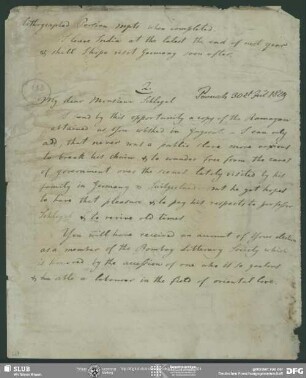 lithographed Persian scripts when completed.
I leave India at the latest the end of next year
& shall I hope visit Germany soon after.
My dear Monsieur Schlegel
I send by this opportunity a copy of the Ramayan
obtained as you wished in Gujerat – I can only
add, that never was a public slave more anxious
to break his chains & to wander free from the cares
of government over the scenes lately visited by his
family in Germany & Switzerland but he yet hopes
to have that pleasure, & to pay his respects to professor
Schlegel & to revive old times
You will have received an account of your election
as a member of the Bombay Literary Society which
is honored by the accession of one who is so zealous
& so able a labourer in the field of oriental lore.
SLUB
Wir führen Wissen.
DFG